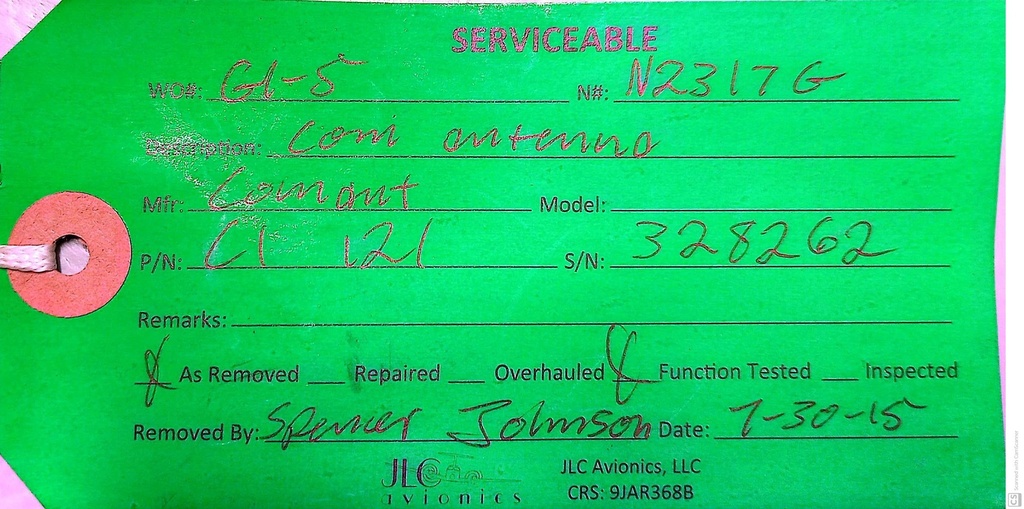 SERVICEABLE
WO#: G1-5 N#: N2317G
Description: Com antenna
Mfr: Comant Model:
P/N: CI 121 S/N: 328262
Remarks:
X As Removed ___ Repaired ___ Overhauled X Function Tested ___ Inspected
Removed By: Spencer Johnson Date: 7-30-15
JLC avionics JLC Avionics, LLC
CRS: 9JAR368B
CS Scanned with CamScanner